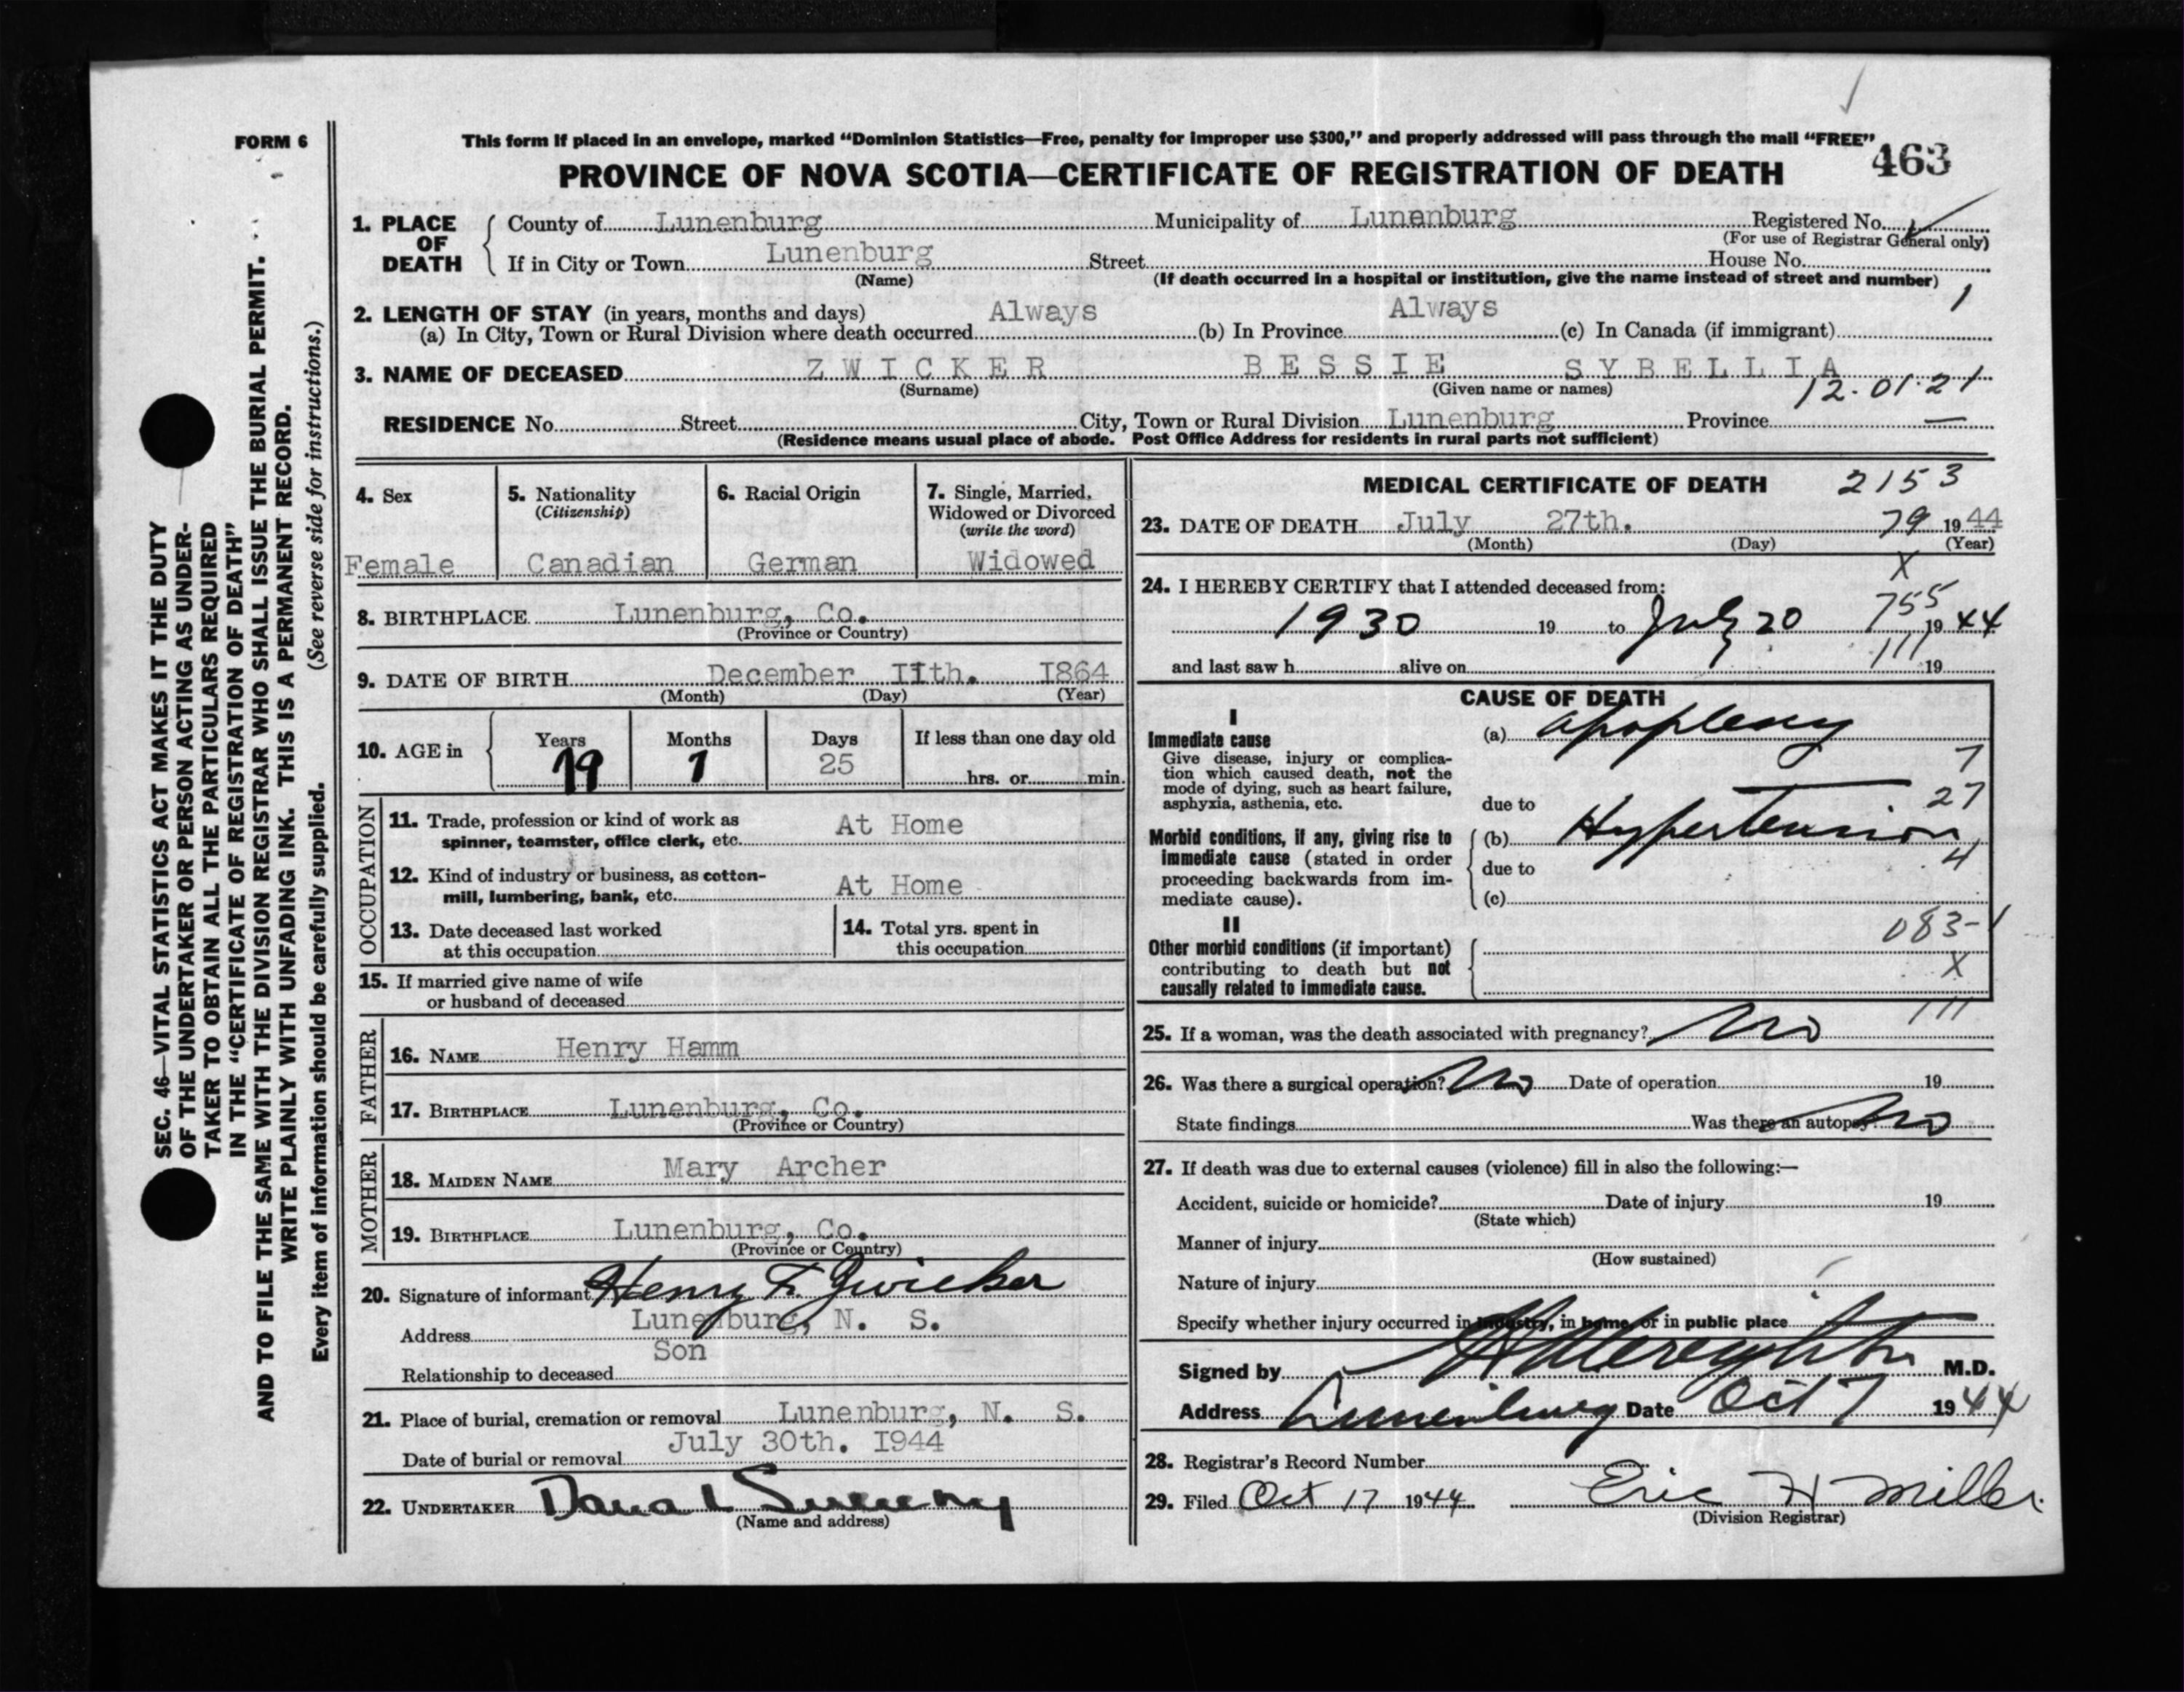 FORM 6
This form if placed in an envelope, marked “Dominion Statistics—Free, penalty for improper use $300,” and properly addressed will pass through the mail “FREE”
463
PROVINCE OF NOVA SCOTIA—CERTIFICATE OF REGISTRATION OF DEATH
1. PLACE OF DEATH County of Lunenburg Municipality of Lunenburg Registered No.
(For use of Registrar General only)
If in City or Town Lunenburg Street House No.
(Name) (If death occurred in a hospital or institution, give the name instead of street and number)
2. LENGTH OF STAY (in years, months and days) 1
(a) In City, Town or Rural Division where death occurred Always (b) In Province Always (c) In Canada (if immigrant)
3. NAME OF DECEASED ZWICKER BESSIE SYBELLIA
(Surname) (Given name or names) 12-01-21
RESIDENCE No. Street City, Town or Rural Division Lunenburg Province —
(Residence means usual place of abode. Post Office Address for residents in rural parts not sufficient)
4. Sex
Female
5. Nationality
(Citizenship)
Canadian
6. Racial Origin
German
7. Single, Married, Widowed or Divorced
(write the word)
Widowed
8. BIRTHPLACE Lunenburg, Co.
(Province or Country)
9. DATE OF BIRTH December IIth. I864
(Month) (Day) (Year)
10. AGE in Years Months Days If less than one day old
79 7 25 hrs. or min.
OCCUPATION
11. Trade, profession or kind of work as
spinner, teamster, office clerk, etc. At Home
12. Kind of industry or business, as cotton-
mill, lumbering, bank, etc. At Home
13. Date deceased last worked
at this occupation
14. Total yrs. spent in
this occupation
15. If married give name of wife
or husband of deceased
FATHER
16. NAME Henry Hamm
17. BIRTHPLACE Lunenburg, Co.
(Province or Country)
MOTHER
18. MAIDEN NAME Mary Archer
19. BIRTHPLACE Lunenburg, Co.
(Province or Country)
20. Signature of informant Henry F. Zwicker
Address Lunenburg, N. S.
Relationship to deceased Son
21. Place of burial, cremation or removal Lunenburg, N. S.
Date of burial or removal July 30th. I944
22. UNDERTAKER Dana L Sweeny
(Name and address)
MEDICAL CERTIFICATE OF DEATH 2153
23. DATE OF DEATH July 27th. 79 1944
(Month) (Day) (Year)
X
24. I HEREBY CERTIFY that I attended deceased from:
755
1930 19 to July 20 19 44
111
and last saw h alive on 19
CAUSE OF DEATH
I
Immediate cause
Give disease, injury or complica-
tion which caused death, not the
mode of dying, such as heart failure,
asphyxia, asthenia, etc.
(a) Apoplexy
7
due to 27
Morbid conditions, if any, giving rise to
immediate cause (stated in order
proceeding backwards from im-
mediate cause).
(b) Hypertension
4
due to
(c)
II
083-1
Other morbid conditions (if important)
contributing to death but not
causally related to immediate cause.
X
111
25. If a woman, was the death associated with pregnancy? No
26. Was there a surgical operation? No Date of operation 19
State findings Was there an autopsy? No
27. If death was due to external causes (violence) fill in also the following:—
Accident, suicide or homicide? Date of injury 19
(State which)
Manner of injury
(How sustained)
Nature of injury
Specify whether injury occurred in industry, in home, or in public place
Signed by M.D.
Address Lunenburg Date Oct 7 1944
28. Registrar's Record Number
29. Filed Oct 17 1944 Eric H Miller
(Division Registrar)
SEC. 46—VITAL STATISTICS ACT MAKES IT THE DUTY
OF THE UNDERTAKER OR PERSON ACTING AS UNDER-
TAKER TO OBTAIN ALL THE PARTICULARS REQUIRED
IN THE “CERTIFICATE OF REGISTRATION OF DEATH”
AND TO FILE THE SAME WITH THE DIVISION REGISTRAR WHO SHALL ISSUE THE BURIAL PERMIT.
WRITE PLAINLY WITH UNFADING INK. THIS IS A PERMANENT RECORD.
Every item of information should be carefully supplied. (See reverse side for instructions.)